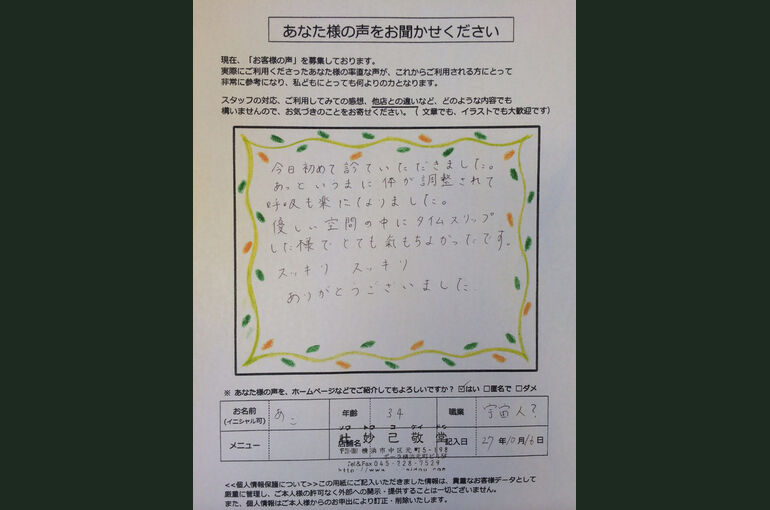 あなた様の声をお聞かせください
現在、「お客様の声」を募集しております。
実際にご利用くださったあなた様の率直な声が、これからご利用される方にとって
非常に参考になり、私どもにとっても何よりの力となります。
スタッフの対応、ご利用してみての感想、他店との違いなど、どのような内容でも
構いませんので、お気づきのことをお寄せください。（ 文章でも、イラストでも大歓迎です）
今日初めて診ていただきました。
あっというまに体が調整されて
呼吸も楽になりました。
優しい空間の中にタイムスリップ
した様でとても氣もちよかったです。
スッキリ スッキリ
ありがとうございました。
※ あなた様の声を、ホームページなどでご紹介してもよろしいですか？ ☑はい □匿名で □ダメ
お名前 (イニシャル可) あこ 年齢 34 職業 宇宙人？
メニュー 店舗名 妙己敬堂 記入日 27年10月16日
横浜市中区元町5-198
Tel&Fax 045-228-7529
<<個人情報保護について>>この用紙にご記入いただきました情報は、貴重なお客様データとして
厳重に管理し、ご本人様の許可なく外部への開示・提供することは一切ございません。
また、個人情報はご本人様からのお申出により訂正・削除いたします。